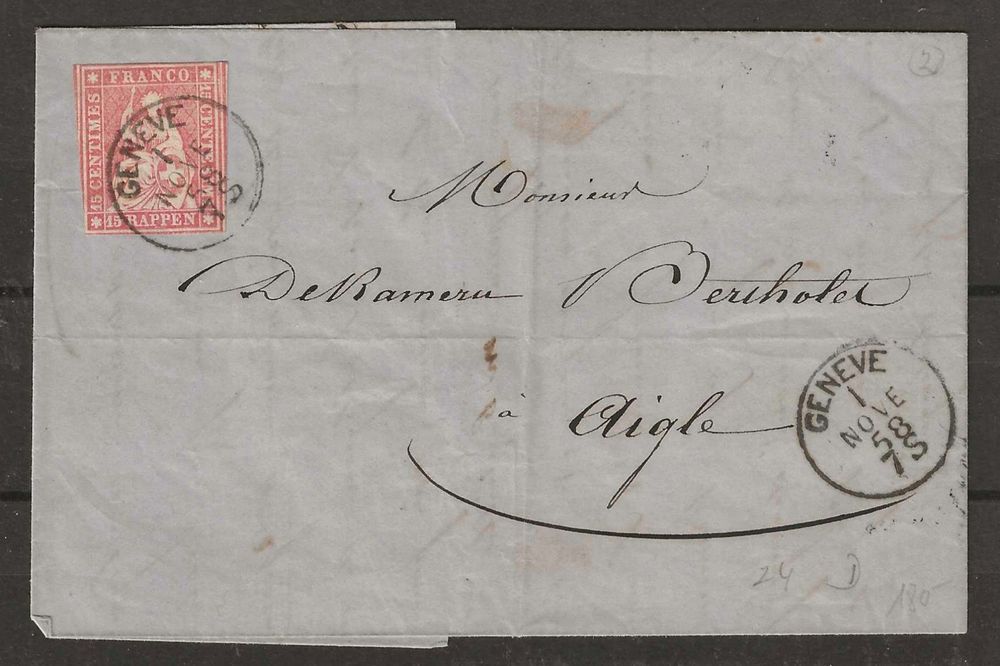 2
FRANCO
15 CENTIMES
15 CENT
15 RAPPEN
GENEVE
1
NOVE
58
7S
Monsieur
DeRameru Bertholet
à Aigle
GENEVE
1
NOVE
58
7S
24 D
180